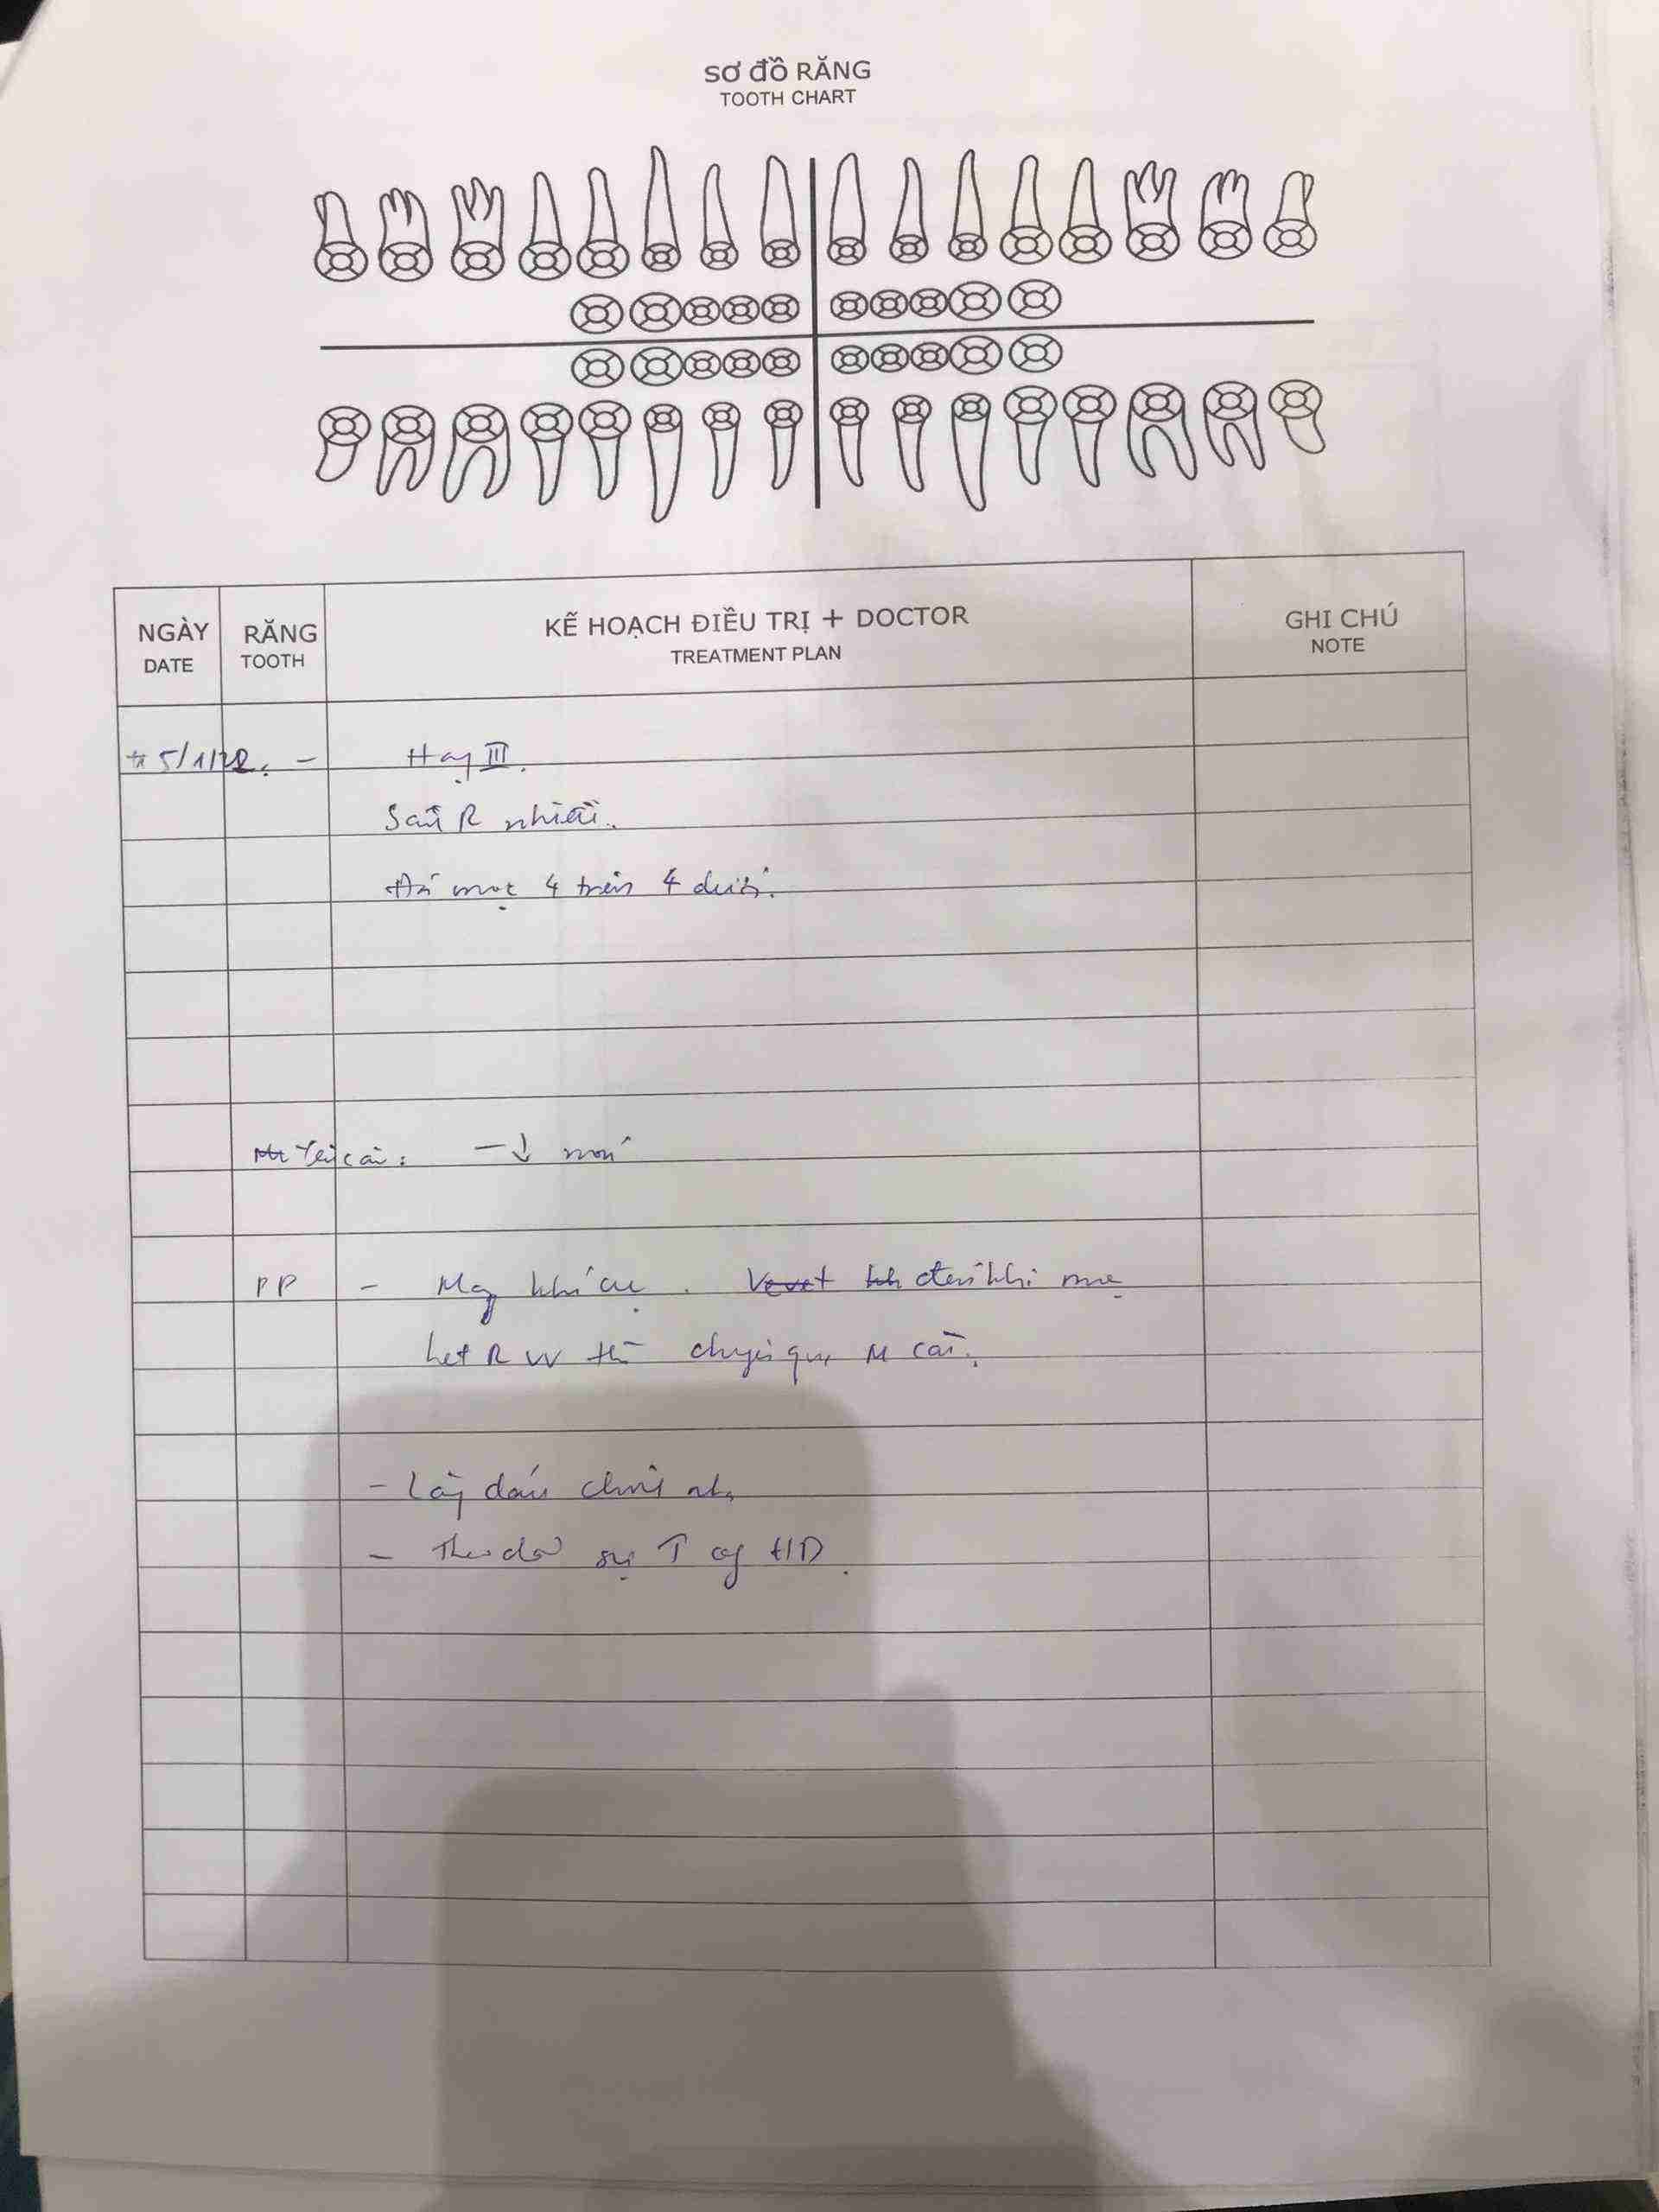 sơ đồ RĂNG
TOOTH CHART
NGÀY
DATE
RĂNG
TOOTH
KẾ HOẠCH ĐIỀU TRỊ + DOCTOR
TREATMENT PLAN
GHI CHÚ
NOTE
5/1/22. - Hạng III.
Sâu R nhiều.
Đã mọc 4 trên 4 dưới.
Yêu cầu: - ↓ móm
PP - Mang khí cụ. đến khi mọc
hết R VV thì chuyển qua M cài.
- Lấy dấu chỉnh nha
- Theo dõi sự T của HD.